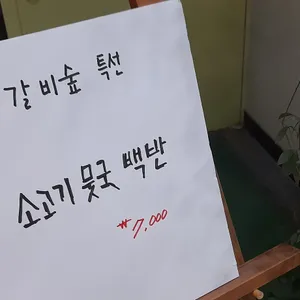 갈비숲 특선
소고기 뭇국 백반
₩7,000